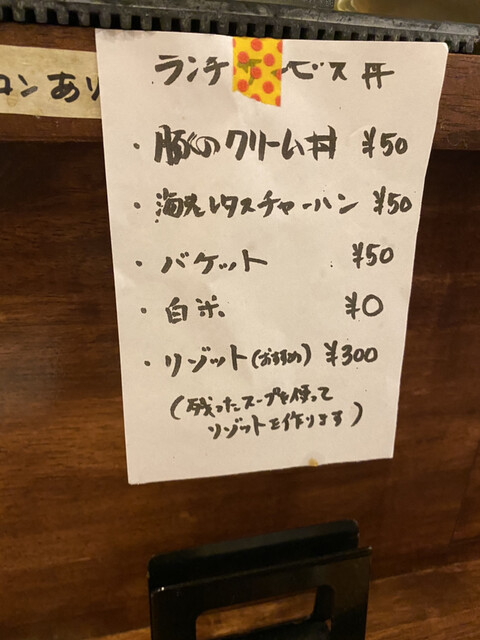 コンあり
ランチサービス丼
・豚のクリーム丼 ¥50
・海老レタスチャーハン ¥50
・バケット ¥50
・白米 ¥0
・リゾット(おすすめ) ¥300
(残ったスープを使って
リゾットを作ります)